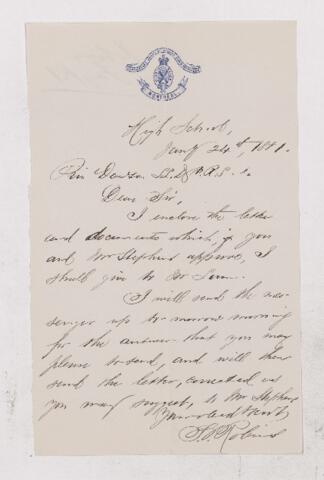 MONTREAL
High School,
Jany 24th, 1881.
Prin Dawson LL.D F.R.S.
Dear Sir,
I enclose the letter
and documents which, if you
and Mr Stephens approve, I
shall give to Mr
I will send the mes-
senger up to-morrow morning
for the answer that you may
please to send, and will then
send the letter, corrected as
you may suggest, to Mr Stephens
Your obedt Servt,
Robins